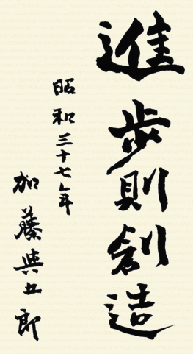 進歩則創造
昭和三十七年
加藤與五郎